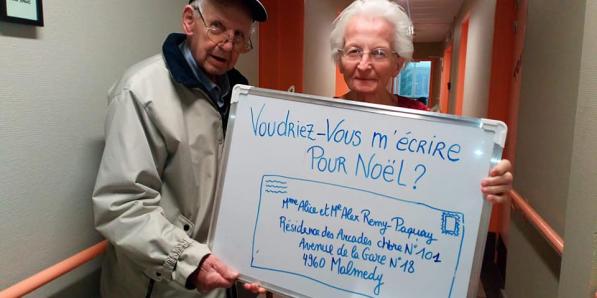 Voudriez-Vous m'écrire
Pour Noël ?
Mme Alice et Mr Alex Remy Paquay
Résidence des Arcades chbre N°101
Avenue de la Gare N°18
4960 Malmedy